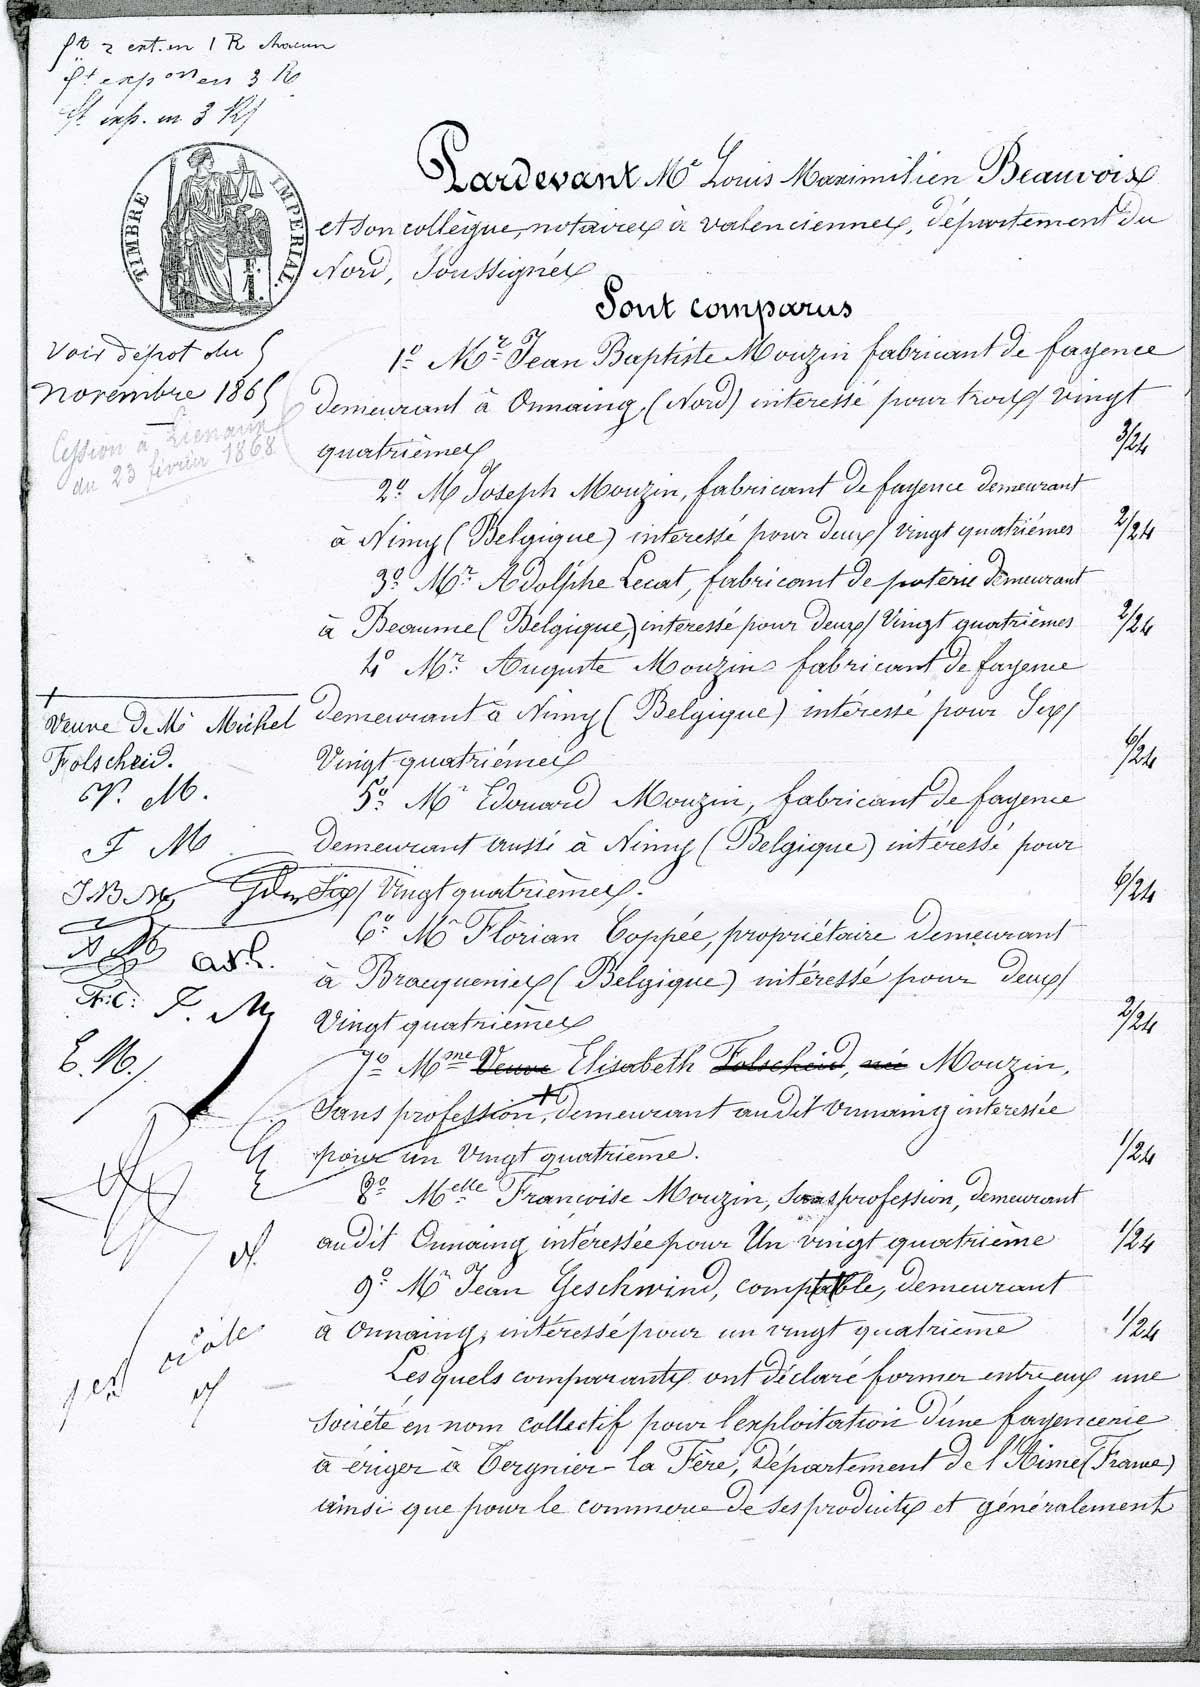 2 ext. en 1 R chacun
exp on en 3 R
exp. en 3 R
TIMBRE IMPERIAL.
Pardevant Me Louis Maximilien Beauvois
et son collègue, notaires à Valenciennes, département du
Nord, Soussignés
Sont comparus
1o Mr Jean Baptiste Mouzin fabricant de fayence
demeurant à Onnaing, (Nord) intéressé pour trois/vingt
quatrièmes 3/24
2o M Joseph Mouzin, fabricant de fayence demeurant
à Nimy (Belgique) intéressé pour deux/vingt quatrièmes 2/24
3o Mr Adolphe Lecat, fabricant de poterie demeurant
à Beaume (Belgique,) intéressé pour deux/Vingt quatrièmes 2/24
4o Mr Auguste Mouzin fabricant de fayence
demeurant à Nimy (Belgique) intéressé pour Six/
Vingt quatrièmes 6/24
5o Mr Edouard Mouzin, fabricant de fayence
demeurant aussi à Nimy (Belgique) intéressé pour
Six/Vingt quatrièmes. 6/24
6o Mr Florian Coppée, propriétaire demeurant
à Bracquenies (Belgique) intéressé pour deux/
Vingt quatrièmes 2/24
7o Mme Veuve Elisabeth Folscheid, née Mouzin,
sans profession +, demeurant audit Onnaing intéressée
pour un Vingt quatrième. 1/24
8o Melle Françoise Mouzin, sans profession, demeurant
audit Onnaing intéressée pour Un vingt quatrième 1/24
9o Mr Jean Geschwind, comptable, demeurant
à Onnaing, intéressé pour un vingt quatrième 1/24
Lesquels comparants ont déclaré former entre eux une
société en nom collectif pour l'exploitation d'une fayencerie
à ériger à Tergnier-la Fère, département de l'Aisne (France)
ainsi que pour le commerce de ses produits et généralement
Voir dépot du 5
novembre 1865
Cession à Lienaux
du 23 février 1868
+
Veuve de Mr Michel
Folscheid.
V. M.
F M
J B M
A M
a.f.L.
F. C.
J. M
E. M.